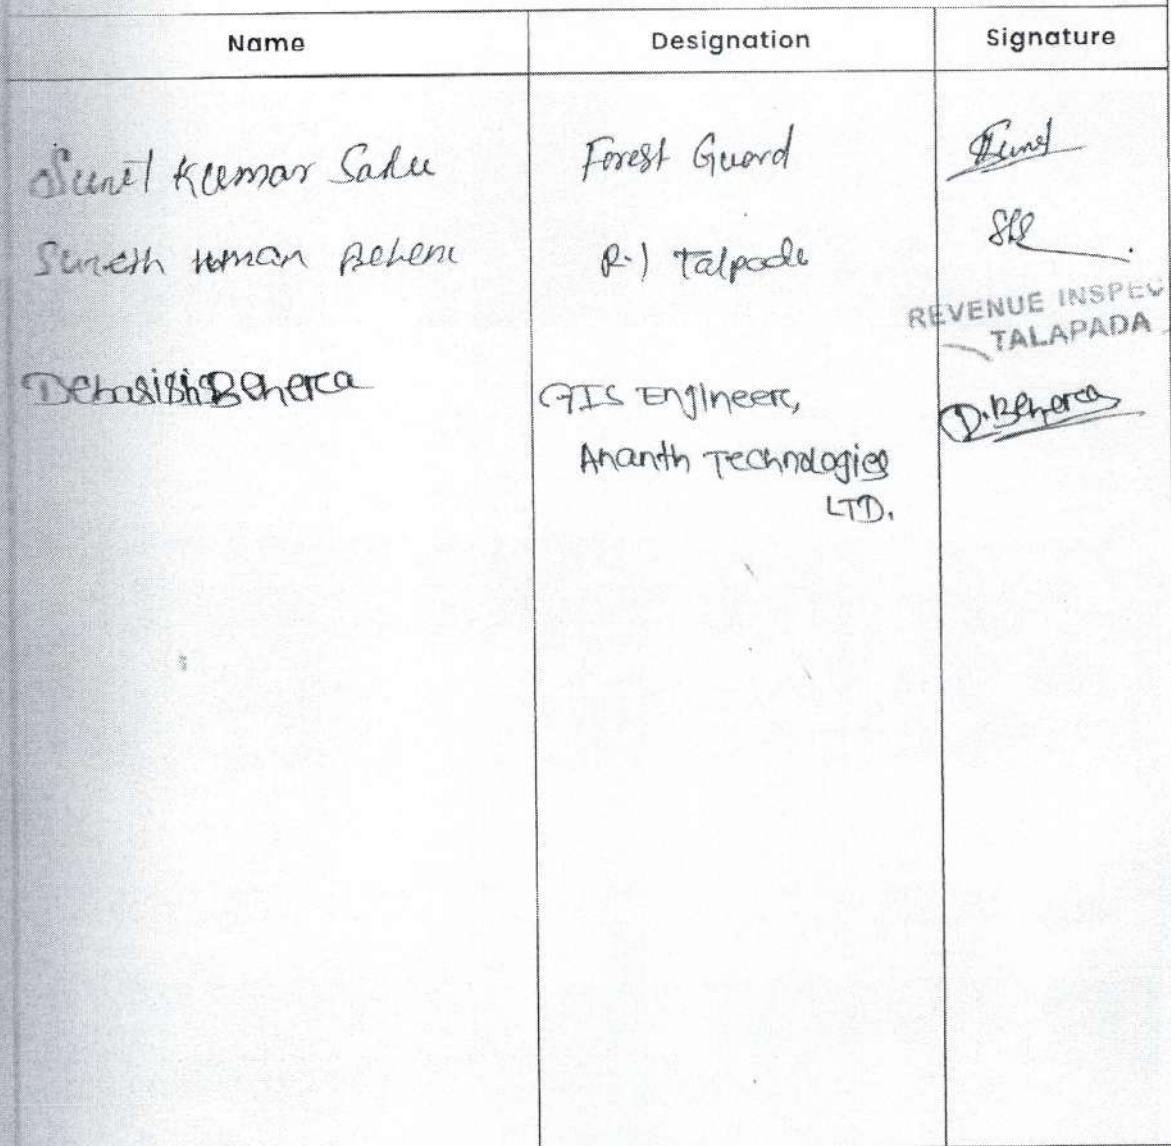 Name Designation Signature
Sunil Kumar Sahu Forest Guard Sunil
Suresh Kumar Behera R.I Talpada
REVENUE INSPEC
TALAPADA
Debasish Beherca GIS Engineerc, D.Beherca
Ananth Technologies
LTD.